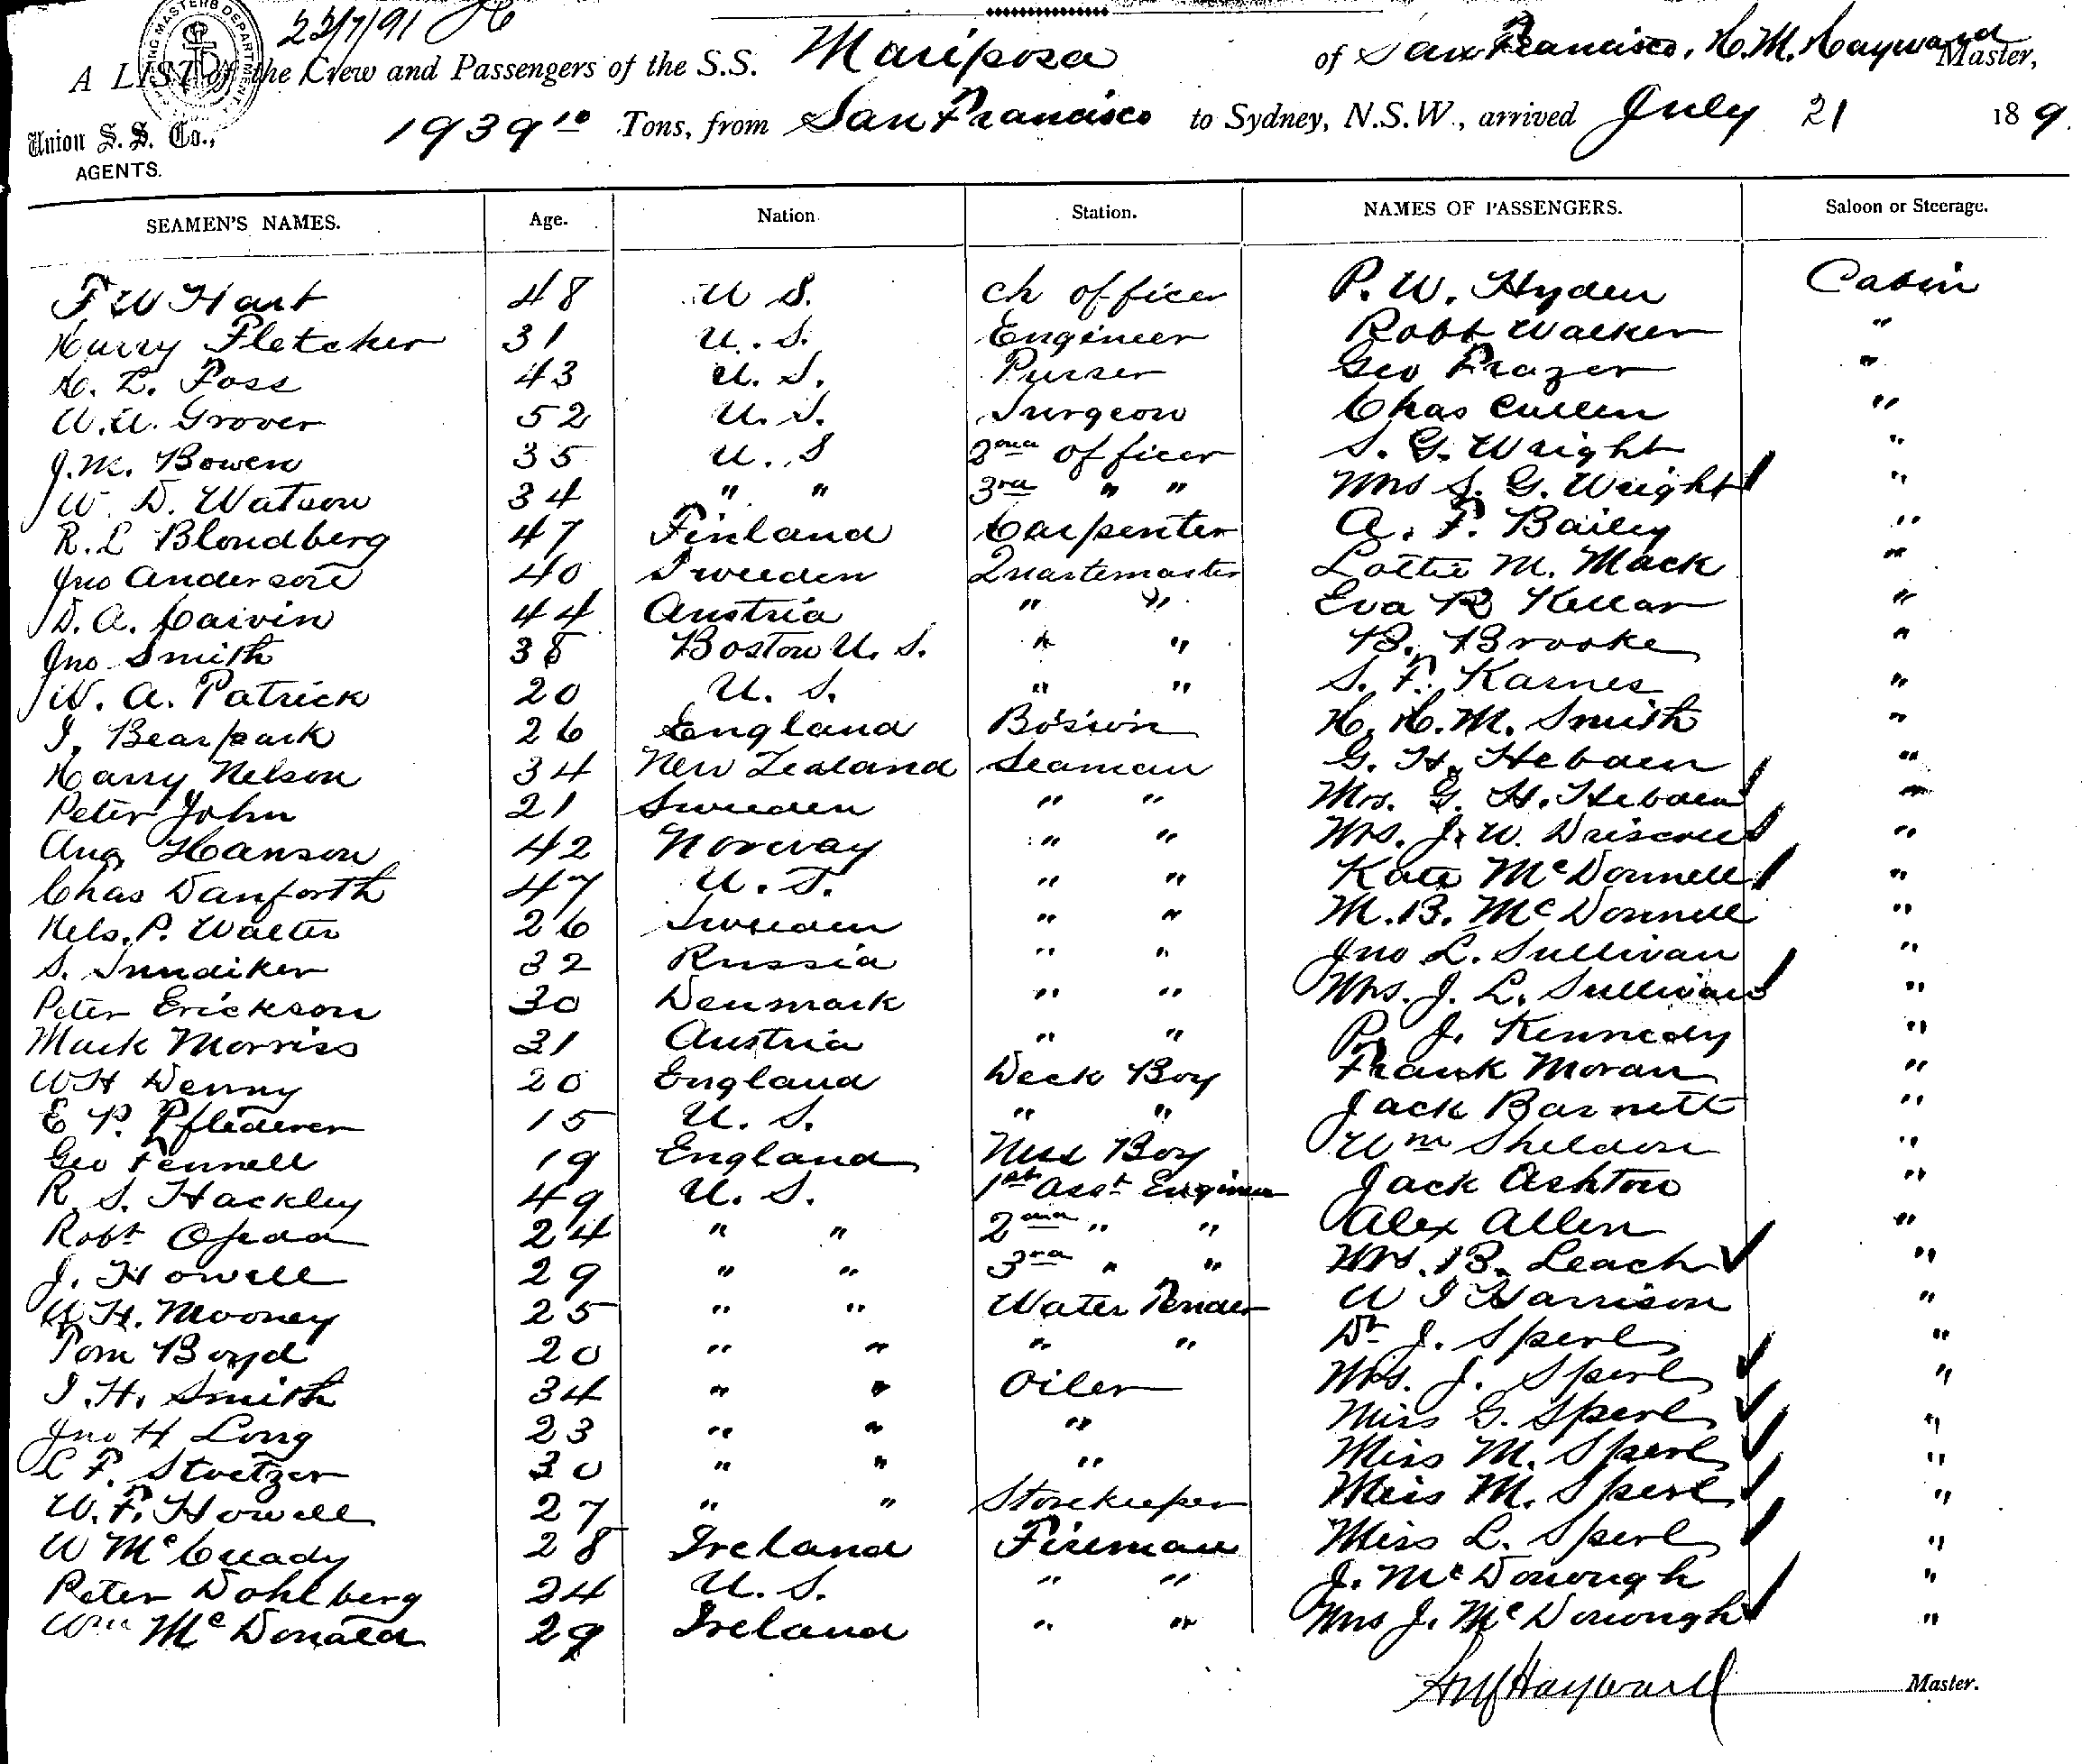 22/7/91
A LIST of the Crew and Passengers of the S.S. Mariposa of San Francisco, H.M. Hayward Master,
Union S. S. Co., AGENTS. 1939 10 Tons, from San Francisco to Sydney, N.S.W., arrived July 21 189
SEAMEN'S NAMES. Age. Nation Station. NAMES OF PASSENGERS. Saloon or Steerage.
F W Hart 48 U S. Ch officer P. W. Hyden Cabin
Harry Fletcher 31 U. S. Engineer Robt Walker "
H. L. Foss 43 U. S. Purser Geo Frazer "
W. W. Grover 52 U. S. Surgeon Chas Cullen "
J. M. Bowen 35 U. S 2nd officer S. G. Wright "
W. D. Watson 34 " " 3rd " " Mrs S. G. Wright "
R. L Blondberg 47 Finland Carpenter A. F. Bailey "
Jno Anderson 40 Sweeden Quartemaster Lottie M. Mack "
D. A. Caivin 44 Austria " " Eva R Kellar "
Jno Smith 38 Boston U. S. " " B. Brooke "
W. A. Patrick 20 U. S. " " S. F. Karnes "
I. Bearpark 26 England Bos'win H. H. M. Smith "
Harry Nelson 34 New Zealand Seaman G. H. Hebden "
Peter John 21 Sweeden " " Mrs. G. H. Hebden "
Aug Hanson 42 Norway " " Mrs. J. W. Driscoll "
Chas Danforth 47 U. S. " " Kate McDonnell "
Nels. P. Walter 26 Sweeden " " M. B. McDonnell "
S. Sundiker 32 Russia " " Jno L. Sullivan "
Peter Erickson 30 Denmark " " Mrs. J. L. Sullivan "
Mark Morriss 31 Austria " " P. J. Kennedy "
W H Denny 20 England Deck Boy Frank Moran "
E P. Pflederer 15 U. S. " " Jack Barnett "
Geo Fennell 19 England Mess Boy Wm Sheldon "
R. S. Hackley 49 U. S. 1st Asst Engineer Jack Ashton "
Robt 24 " " 2nd " " Alex Allen "
J. Howell 29 " " 3rd " " Mrs. B. Leach "
W H. Mooney 25 " " Water Tender W I Harrison "
Tom Boyd 20 " " " " Dr J. Sperl "
I. H. Smith 34 " " Oiler Mrs. J. Sperl "
Jno H Long 23 " " " Miss G. Sperl "
L F. Stoetzer 30 " " " Miss M. Sperl "
W. F. Howell 27 " " Storekeeper Miss M. Sperl "
W McCready 28 Ireland Fireman Miss L. Sperl "
Peter Dohlberg 24 U. S. " " J. McDonough "
Wm McDonald 29 Ireland " " Mrs J. McDonough "
HM Hayward Master.